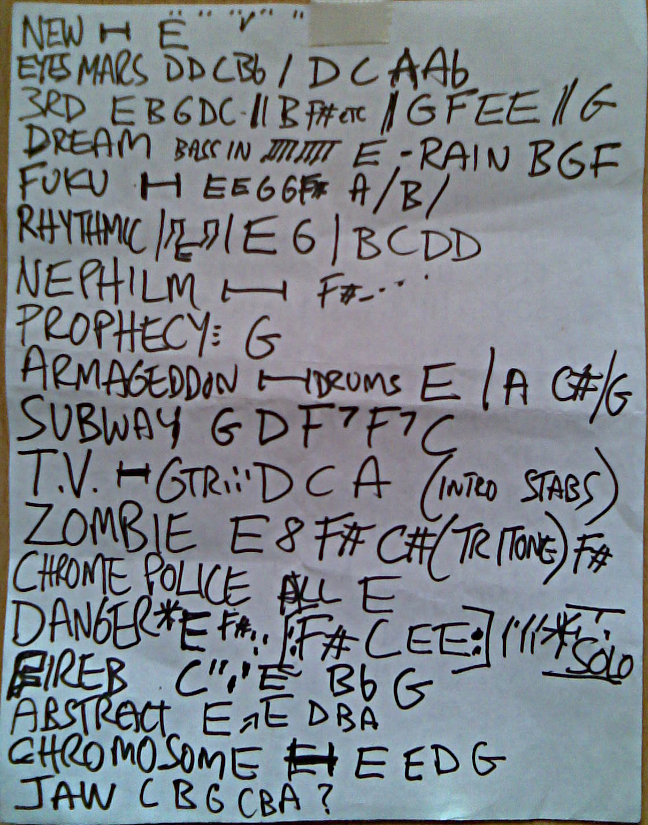 NEW H E " V " "
EYES MARS DDCBb / D C A Ab
3RD E B G D C - || B F# ETC || G F E E || G
DREAM BASS IN //////// E - RAIN B G F
FUKU H E E G G F# A / B /
RHYTHMIC | | E G | B C D D
NEPHILM H F# - . . .
PROPHECY: G
ARMAGEDDON H DRUMS E / A C#/G
SUBWAY G D F7 F7 C
T.V. H GTR D C A (INTRO STABS)
ZOMBIE E 8 F# C# (TRITONE) F#
CHROME POLICE ALL E
DANGER * E F# . . [: F# C E E :] / / / * SOLO
FIREB C " E Bb G
ABSTRACT E E D B A
CHROMOSOME H E E D G
JAW C B G C B A ?